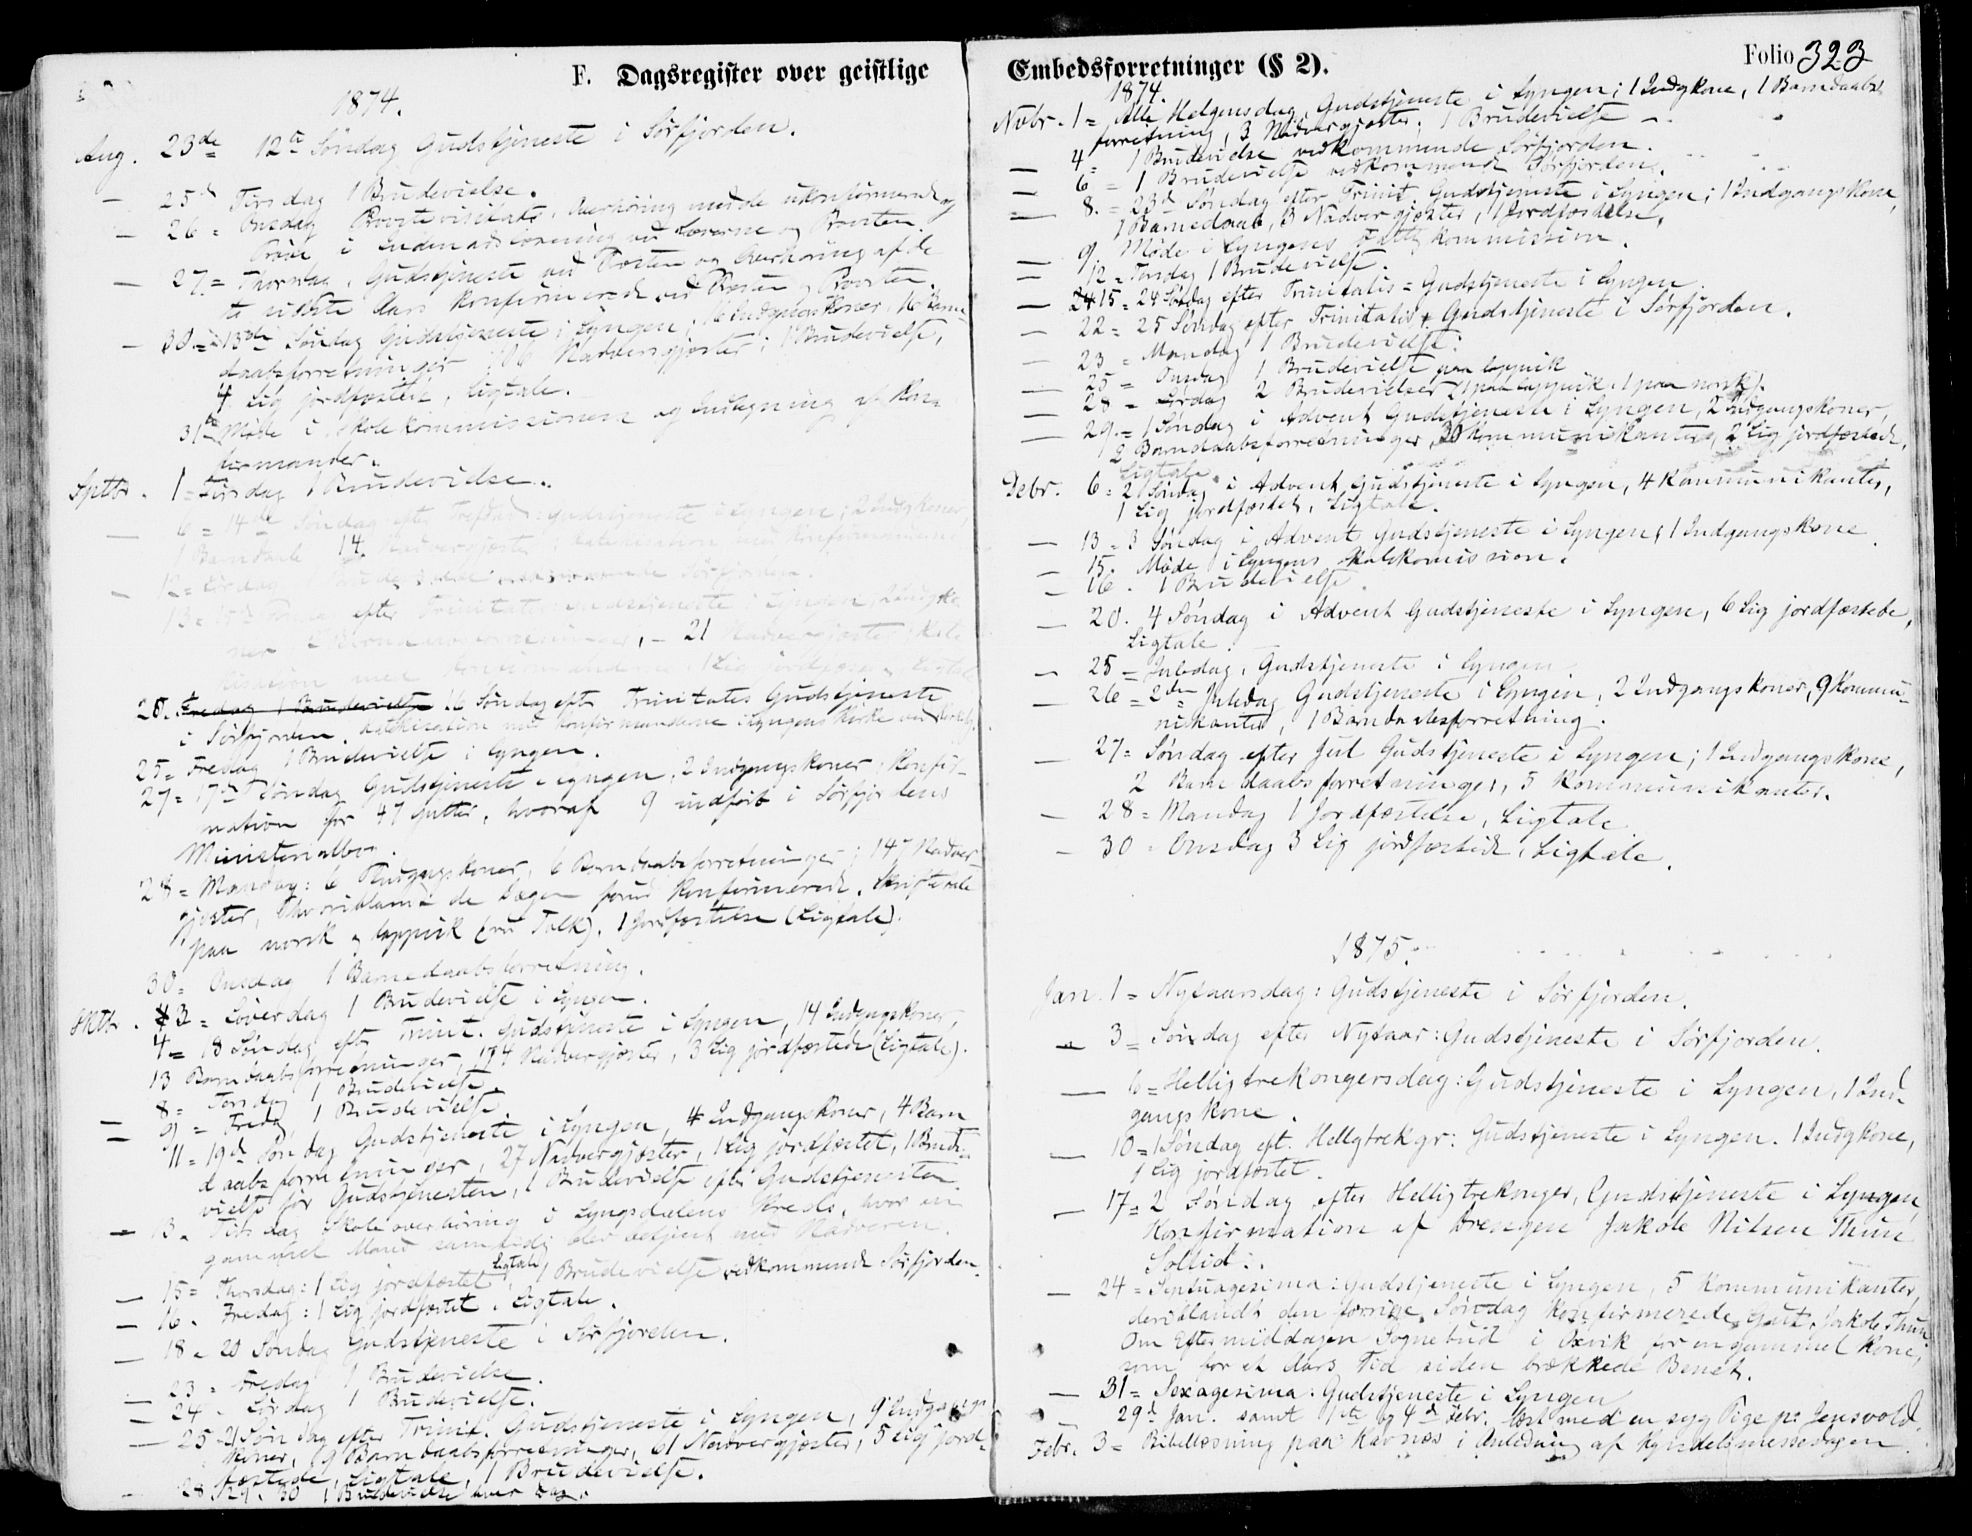 F. Dagsregister over geistlige
1874.
Aug. 23de 12te Søndag Gudstjeneste i Sørfjorden.
— 25de Tirsdag 1 Brudevielse.
— 26 = Onsdag Provstevisitats, Overhøring med de ukonfirmerede og
— 27 = Thorsdag, Gudstjeneste ved Provsten og Overhøring af de
— 30 = 13de Søndag Gudstjeneste i Lyngen, 16 Indgangskoner, 16 Barne-
daabsforretninger, Nadvergjæster, 1 Brudevielse,
4 Lig jordfæstede, Ligtale.
31te Møde i Skolekommissionen og Indtegning af Kon-
firmander.
Septbr. 1 = Tirsdag 1 Brudevielse.
— 6 = 14de Søndag efter Gudstjeneste i Lyngen, 2 Indgkoner,
1 Barnedaab 14 Nadvergjæster, Katekisation med Konfirmanderne
— 12 = Lørdag 1 Brudevielse vedkommende Sørfjorden.
13 = 15de Søndag efter Trinitatis Gudstjeneste i Lyngen, 2 Indgko-
ner, 21 Nadvergjæster, Kate-
kisation med Konfirmanderne, 1 Lig jordfæstet, Ligtale
20. Fredag 1 Brudevielse 16 Søndag eft. Trinitatis Gudstjeneste
i Sørfjorden. Katekisation med Konfirmanderne i Lyngens Kirke ved
25 = Fredag 1 Brudevielse i Lyngen.
27 = 17de Søndag Gudstjeneste i Lyngen, 2 Indgangskoner, Konfir-
mation for 47 Gutter, hvoraf 9 indført i Sørfjordens
Ministerialbog.
28 = Mandag: 6 Indgangskoner, 6 Barnedaabsforretninger, 147 Nadver-
gjæster, de Dagen forud Konfirmerede. Skriftetale
paa norsk og lappisk (ved Tolk). 1 Jordfæstelse (Ligtale).
30 = Onsdag 1 Barnedaabsforretning.
Oktbr. 3 = Løverdag 1 Brudevielse i Lyngen.
4 = 18 Søndag eft. Trinit. Gudstjeneste i Lyngen, 14 Indgangskoner,
13 Barnedaabsforretninger, 174 Nadvergjæster, 3 Lig jordfæstede (Ligtale).
8 = Torsdag 1 Brudevielse.
— 9 = Fredag, 1 Brudevielse.
— 11 = 19de Søndag Gudstjeneste i Lyngen, 4 Indgangskoner, 4 Barn
daabsforretninger, 27 Nadvergjæster, 1 Lig jordfæstet, 1 Brude-
vielse før Gudstjenesten, 1 Brudevielse efter Gudstjenesten.
— 13. Tirsdag Skoleoverhøring i Lyngsdalens Kreds, hvor en
gammel Mand samtidig blev betjent med Nadveren.
— 15 = Thorsdag: 1 Lig jordfæstet, Ligtale, 1 Brudevielse vedkommende Sørfjorden.
— 16. Fredag: 1 Lig jordfæstet. Ligtale.
— 18 = 20 Søndag Gudstjeneste i Sørfjorden.
— 23 = Fredag 1 Brudevielse.
— 24. Lørdag 1 Brudevielse.
— 25 = 21 Søndag efter Trinit. Gudstjeneste i Lyngen, 9 Indgangs-
koner, 9 Barnedaabsforretninger, 61 Nadvergjæster, 5 Lig jord-
fæstede, Ligtale, 1 Brudevielse.
— 28, 29, 30 1 Brudevielse hver Dag.
Embedsforretninger (§ 2).
Folio 323
1874.
Novbr. 1 = Alle Helgensdag, Gudstjeneste i Lyngen; 1 Indgkone, 1 Barnedaabs
forretning, 3 Nadvergjæster, 1 Brudevielse
— 4 = 1 Brudevielse vedkommende Sørfjorden.
— 6 = 1 Brudevielse vedkommende Sørfjorden.
— 8. = 23de Søndag efter Trinit. Gudstjeneste i Lyngen; 1 Indgangskone,
1 Barnedaab, 3 Nadvergjæster, 1 Jordfæstelse.
— 9. Møde i Lyngens Fattigkommission.
— 12 = Torsdag 1 Brudevielse.
— 15 = 24 Søndag efter Trinitatis = Gudstjeneste i Lyngen.
— 22 = 25 Søndag efter Trinitatis Gudstjeneste i Sørfjorden.
— 23 = Mandag 1 Brudevielse.
— 25 = Onsdag 1 Brudevielse paa lappisk
— 28 = Lørdag 2 Brudevielser (1 paa lappisk, 1 paa norsk).
— 29. = 1 Søndag i Advent Gudstjeneste i Lyngen, 2 Indgangskoner,
2 Barnedaabsforretninger, 30 Kommunikanter, 2 Lig jordfæstede,
Ligtale.
Debr. 6 = 2 Søndag i Advent Gudstjeneste i Lyngen, 4 Kommunikanter,
1 Lig jordfæstet, Ligtale.
— 13 = 3 Søndag i Advent Gudstjeneste i Lyngen, 1 Indgangskone.
— 15. Møde i Lyngens Skolekomission.
— 16. 1 Brudevielse.
— 20. 4 Søndag i Advent Gudstjeneste i Lyngen, 6 Lig jordfæstede,
Ligtale.
— 25 = Juledag, Gudstjeneste i Lyngen
— 26 = 2den Juledag Gudstjeneste i Lyngen, 2 Indgangskoner, 9 Kommu-
nikanter, 1 Barnedaabsforretning.
— 27 = Søndag efter Jul Gudstjeneste i Lyngen; 1 Indgangskone,
2 Barnedaabsforretninger, 5 Kommunikanter.
— 28 = Mandag 1 Jordfæstelse, Ligtale
— 30 = Onsdag 3 Lig jordfæstede, Ligtale.
1875.
Jan. 1 = Nytaarsdag: Gudstjeneste i Sørfjorden.
— 3 = Søndag efter Nytaar: Gudstjeneste i Sørfjorden.
— 6 = Helligtrekongersdag: Gudstjeneste i Lyngen, 1 Ind
gangskone.
— 10 = 1 Søndag eft. Helligtrekgr: Gudstjeneste i Lyngen. 1 Indgkone,
1 Lig jordfæstet.
— 17 = 2 Søndag efter Helligtrekonger, Gudstjeneste i Lyngen
Konfirmation af Drengen Jakob Nilsen Thun
Sollid.
— 24 = Septuagesima: Gudstjeneste i Lyngen, 5 Kommunikanter,
deriblandt den forrige Søndag Konfirmerede Gut, Jakob Thun
Om Eftermiddagen Sognebud i Oxvik for en gammel Kone,
som for et Aars Tid siden brækkede Benet.
— 31 = Sexagesima: Gudstjeneste i Lyngen
29de Jan. samt 1ste og 4de Febr. læst med en syg Pige pr Jensvold.
Febr. 3 = Bibellæsning paa Kavnæs i Anledning af Kyndelsmessedagen